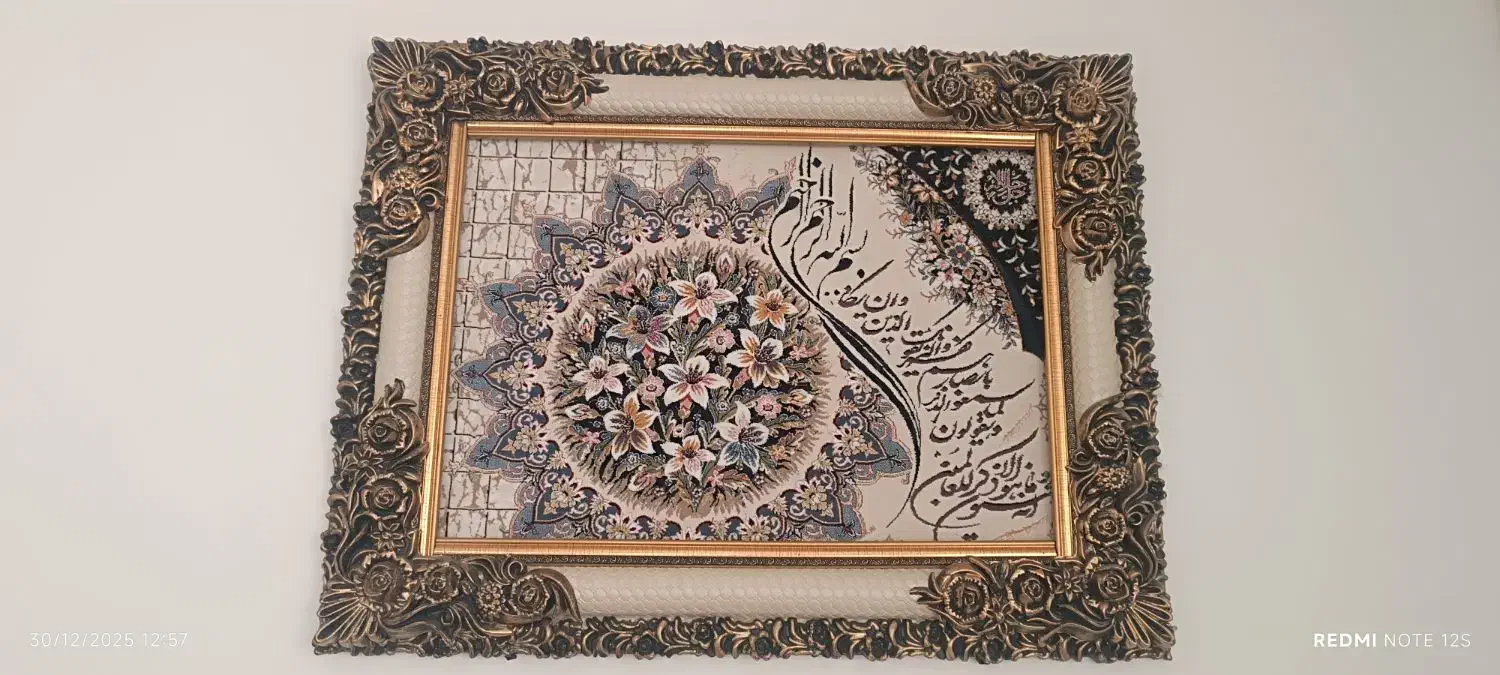 بسم الله الرحمن الرحیم
وان یکاد
الذین
کفروا لیزلقونک
بابصارهم
لما سمعوا الذکر
ویقولون
انه لمجنون
وما هو الا ذکر للعالمین
30/12/2025 12:57
REDMI NOTE 12S